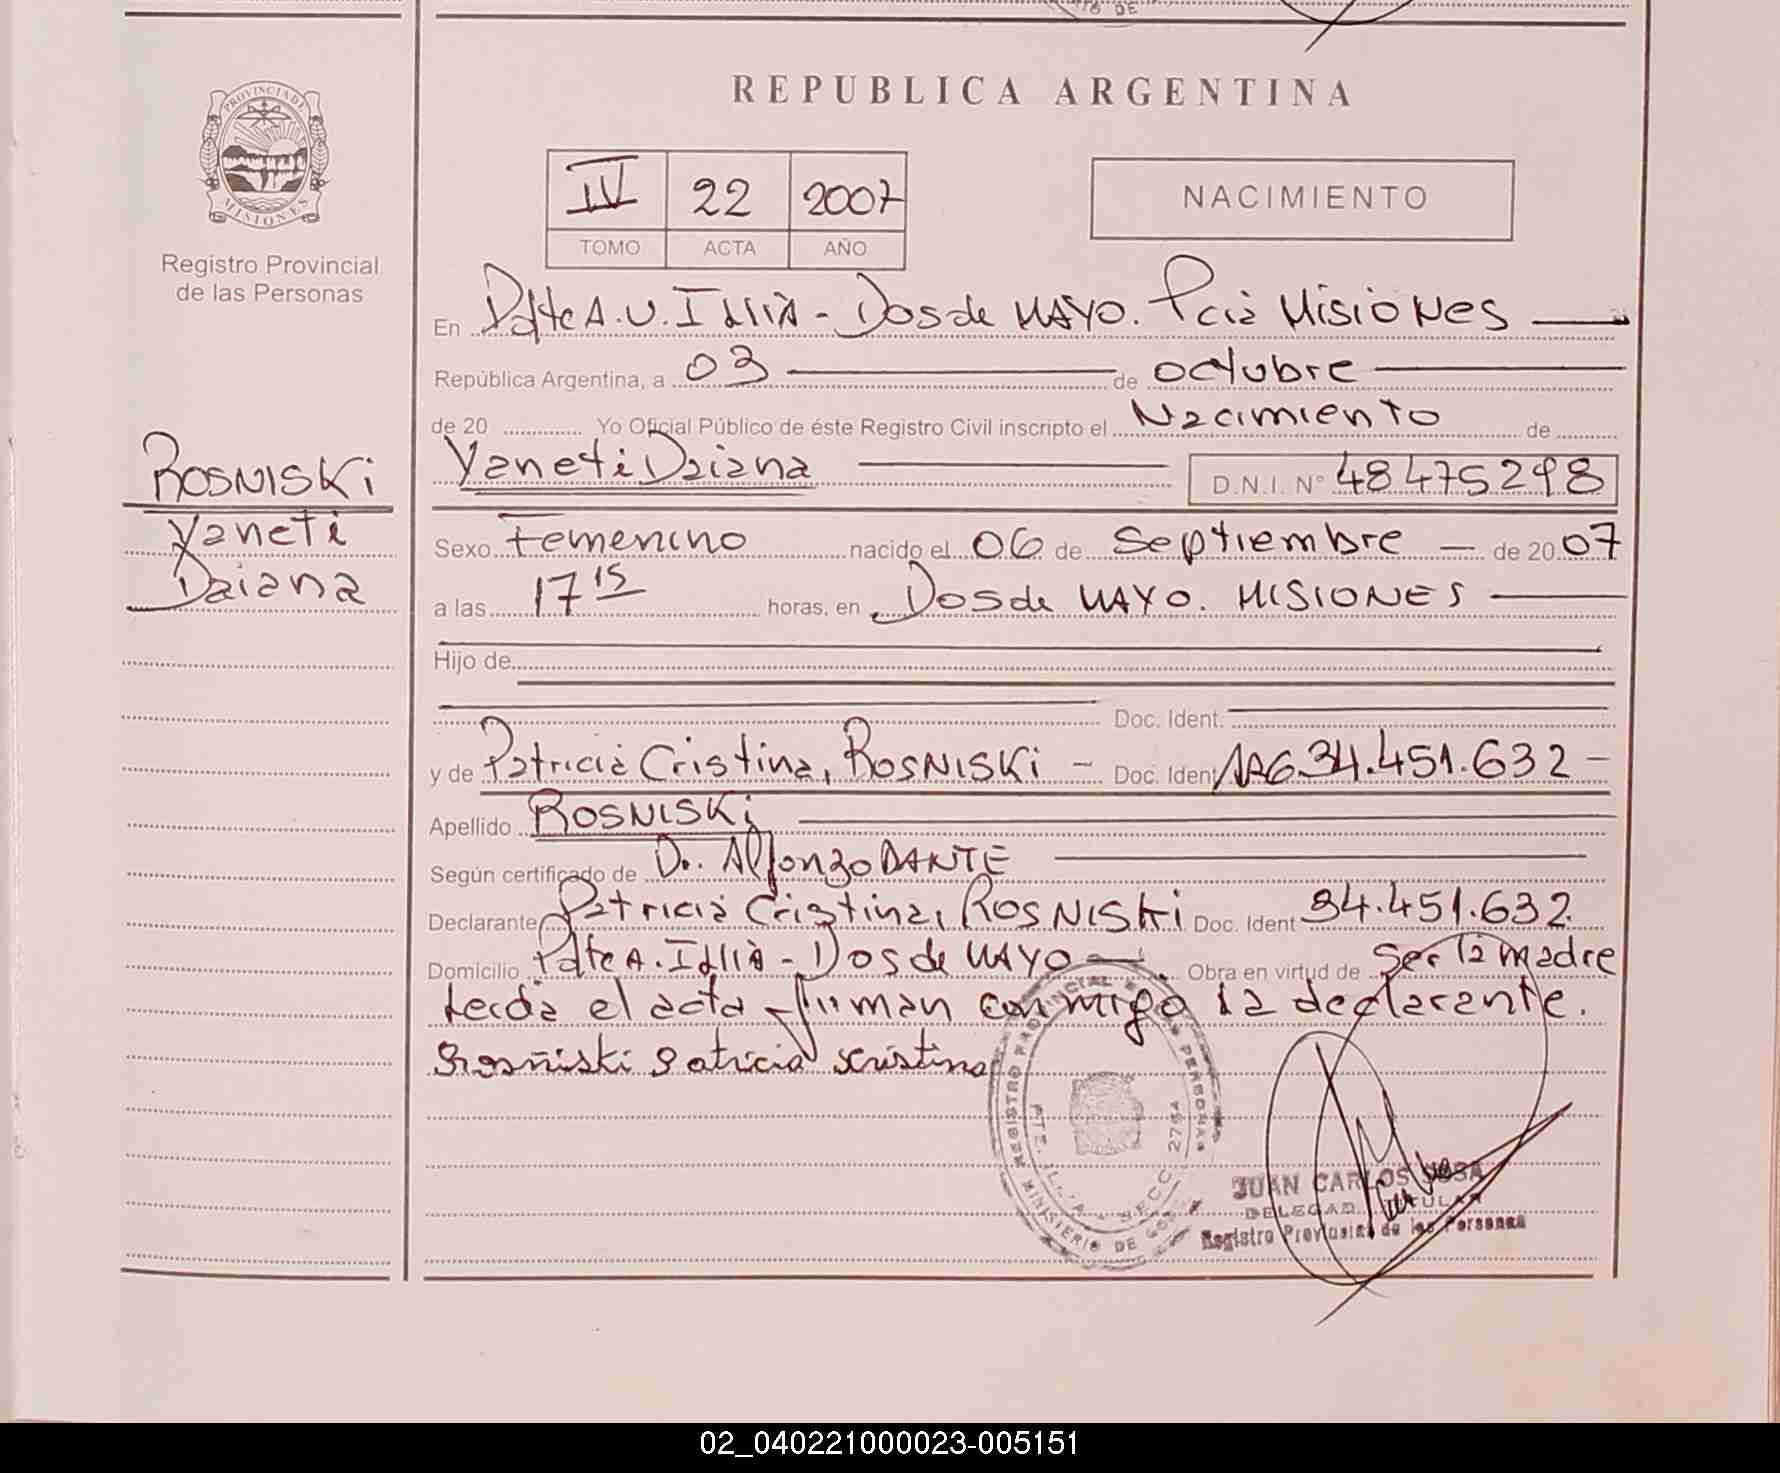 REPUBLICA ARGENTINA
PROVINCIA DE
MISIONES
Registro Provincial
de las Personas
IV 22 2007
TOMO ACTA AÑO
NACIMIENTO
En Pdte A. U. Illià - Dos de MAYO. Pcia Misiones
República Argentina, a 03 de octubre
de 20 Yo Oficial Público de éste Registro Civil inscripto el Nacimiento de
Yaneti Daiana D.N.I. N° 48475298
ROSNISKi
Yaneti
Daiana
Sexo Femenino nacido el 06 de Septiembre de 2007
a las 17 15 horas, en Dos de MAYO. MISIONES
Hijo de
Doc. Ident.
y de Patricia Cristina, ROSNISKi - Doc. Ident 34.451.632 -
Apellido ROSNISKi
Según certificado de Dr. Alfonzo DANTE
Declarante Patricia Cristina, ROSNISKi Doc. Ident 34.451.632
Domicilio Pdte A. Illià - Dos de MAYO Obra en virtud de Ser la madre
Leida el acta firman conmigo la declarante.
Rosñiski Patricia Kristina
REGISTRO PROVINCIAL DE LAS PERSONAS
MINISTERIO DE
PTE. ILLIA - SECC. 2764
JUAN CARLOS SOSA
DELEGADO TITULAR
Registro Provincial de las Personas
02_040221000023-005151